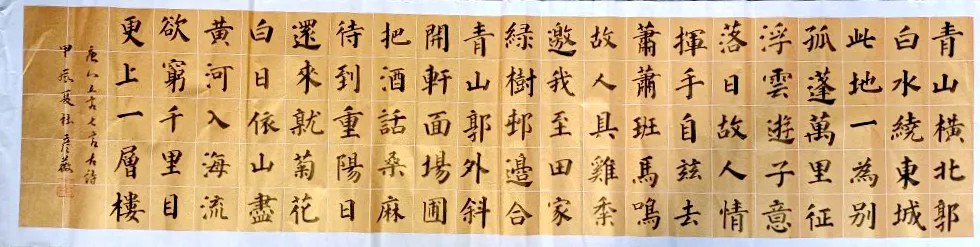 青山橫北郭
白水繞東城
此地一為別
孤蓬萬里征
浮雲遊子意
落日故人情
揮手自茲去
蕭蕭班馬鳴
故人具雞黍
邀我至田家
綠樹邨邊合
青山郭外斜
開軒面場圃
把酒話桑麻
待到重陽日
還來就菊花
白日依山盡
黃河入海流
欲窮千里目
更上一層樓
唐人五言七言古詩
甲辰夏